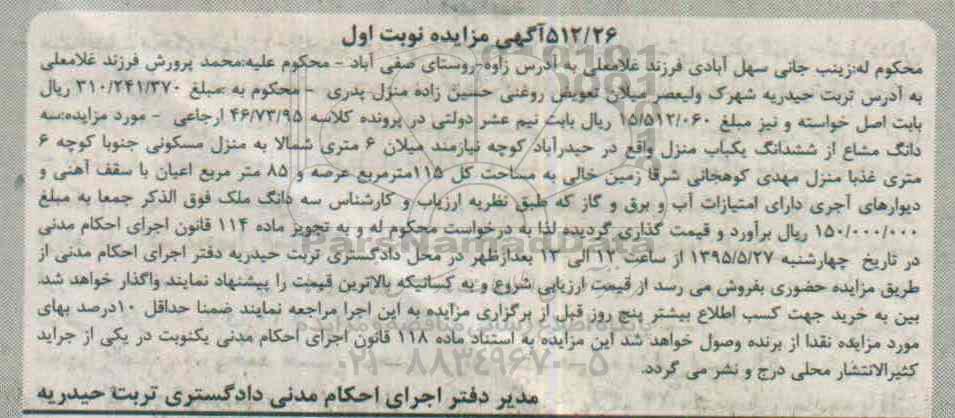 ۵۱۲/۲۶آگهی مزایده نوبت اول
محکوم له:زینب جانی سهل آبادی فرزند غلامعلی به آدرس زاوه-روستای صفی آباد - محکوم علیه:محمد پرورش فرزند غلامعلی
به آدرس تربت حیدریه شهرک ولیعصر میلان تعویض روغنی حسین زاده منزل پدری - محکوم به مبلغ ۳۱۰/۲۴۱/۳۷۰ ریال
بابت اصل خواسته و نیز مبلغ ۱۵/۵۱۲/۰۶۰ ریال بابت نیم عشر دولتی در پرونده کلاسه ۴۶/۷۳/۹۵ ارجاعی - مورد مزایده:سه
دانگ مشاع از ششدانگ یکباب منزل واقع در حیدرآباد کوچه نیازمند میلان ۶ متری شمالا به منزل مسکونی جنوبا کوچه ۶
متری غذبا منزل مهدی کوهجانی شرقا زمین خالی به مساحت کل ۱۱۵مترمربع عرصه و ۸۵ متر مربع اعیان با سقف آهنی و
دیوارهای آجری دارای امتیازات آب و برق و گاز که طبق نظریه ارزیاب و کارشناس سه دانگ ملک فوق الذکر جمعا به مبلغ
۱۵۰/۰۰۰/۰۰۰ ریال برآورد و قیمت گذاری گردیده لذا به درخواست محکوم له و به تجویز ماده ۱۱۴ قانون اجرای احکام مدنی
در تاریخ چهارشنبه ۱۳۹۵/۵/۲۷ از ساعت ۱۲ الی ۱۳ بعدازظهر در محل دادگستری تربت حیدریه دفتر اجرای احکام مدنی از
طریق مزایده حضوری بفروش می رسد از قیمت ارزیابی شروع و به کسانیکه بالاترین قیمت را پیشنهاد نمایند واگذار خواهد شد.
بین به خرید جهت کسب اطلاع بیشتر پنج روز قبل از برگزاری مزایده به این اجرا مراجعه نمایند ضمنا حداقل ۱۰درصد بهای
مورد مزایده نقدا از برنده وصول خواهد شد این مزایده به استناد ماده ۱۱۸ قانون اجرای احکام مدنی یکنوبت در یکی از جراید
کثیرالانتشار محلی درج و نشر می گردد.
مدیر دفتر اجرای احکام مدنی دادگستری تربت حیدریه
ParsNamadData
۰۲۱-۸۸۳۴۹۶۷۰-۵